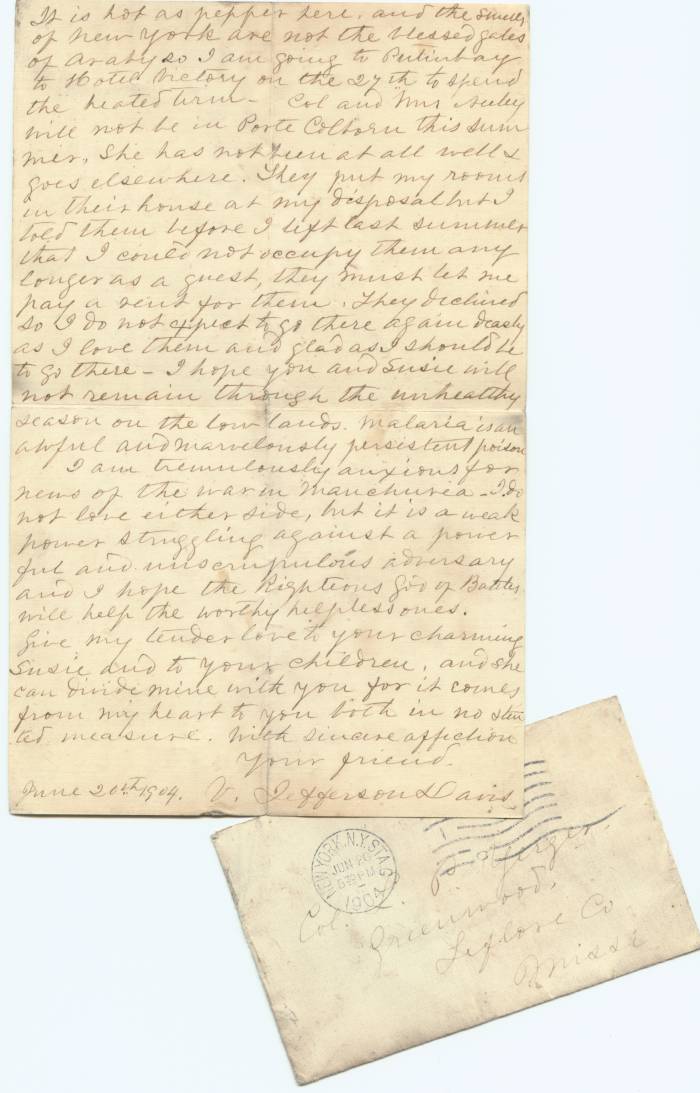 It is hot as pepper here, and the smells
of New York are not the blessed gales
of Araby so I am going to Putinbay
to Hotel Victory on the 27th to spend
the heated term - Col and Mrs
will not be in Porte Colborn this sum
mer. She has not been at all well &
goes elsewhere. They put my rooms
in their house at my disposal but I
told them before I left last summer
that I could not occupy them any
longer as a guest, they must let me
pay a rent for them. They declined
so I do not expect to go there again dearly
as I love them and glad as I should be
to go there - I hope you and Susie will
not remain through the unhealthy
season on the low lands. Malaria is an
awful and marvelously persistent poison
I am tremulously anxious for
news of the war in Manchuria - I do
not love either side, but it is a weak
power struggling against a power
ful and unscrupulous adversary
and I hope the Righteous God of Battles
will help the worthy helpless ones.
Give my tender love to your charming
Susie and to your children, and she
can divide mine with you for it comes
from my heart to you both in no stin
ted measure. With sincere affection
Your friend.
June 20th 1904. V. Jefferson Davis
NEW YORK, N.Y. STA. G
JUN 20
6 30 PM
1904
Col. Yerger.
Greenwood,
Leflore Co
Missi